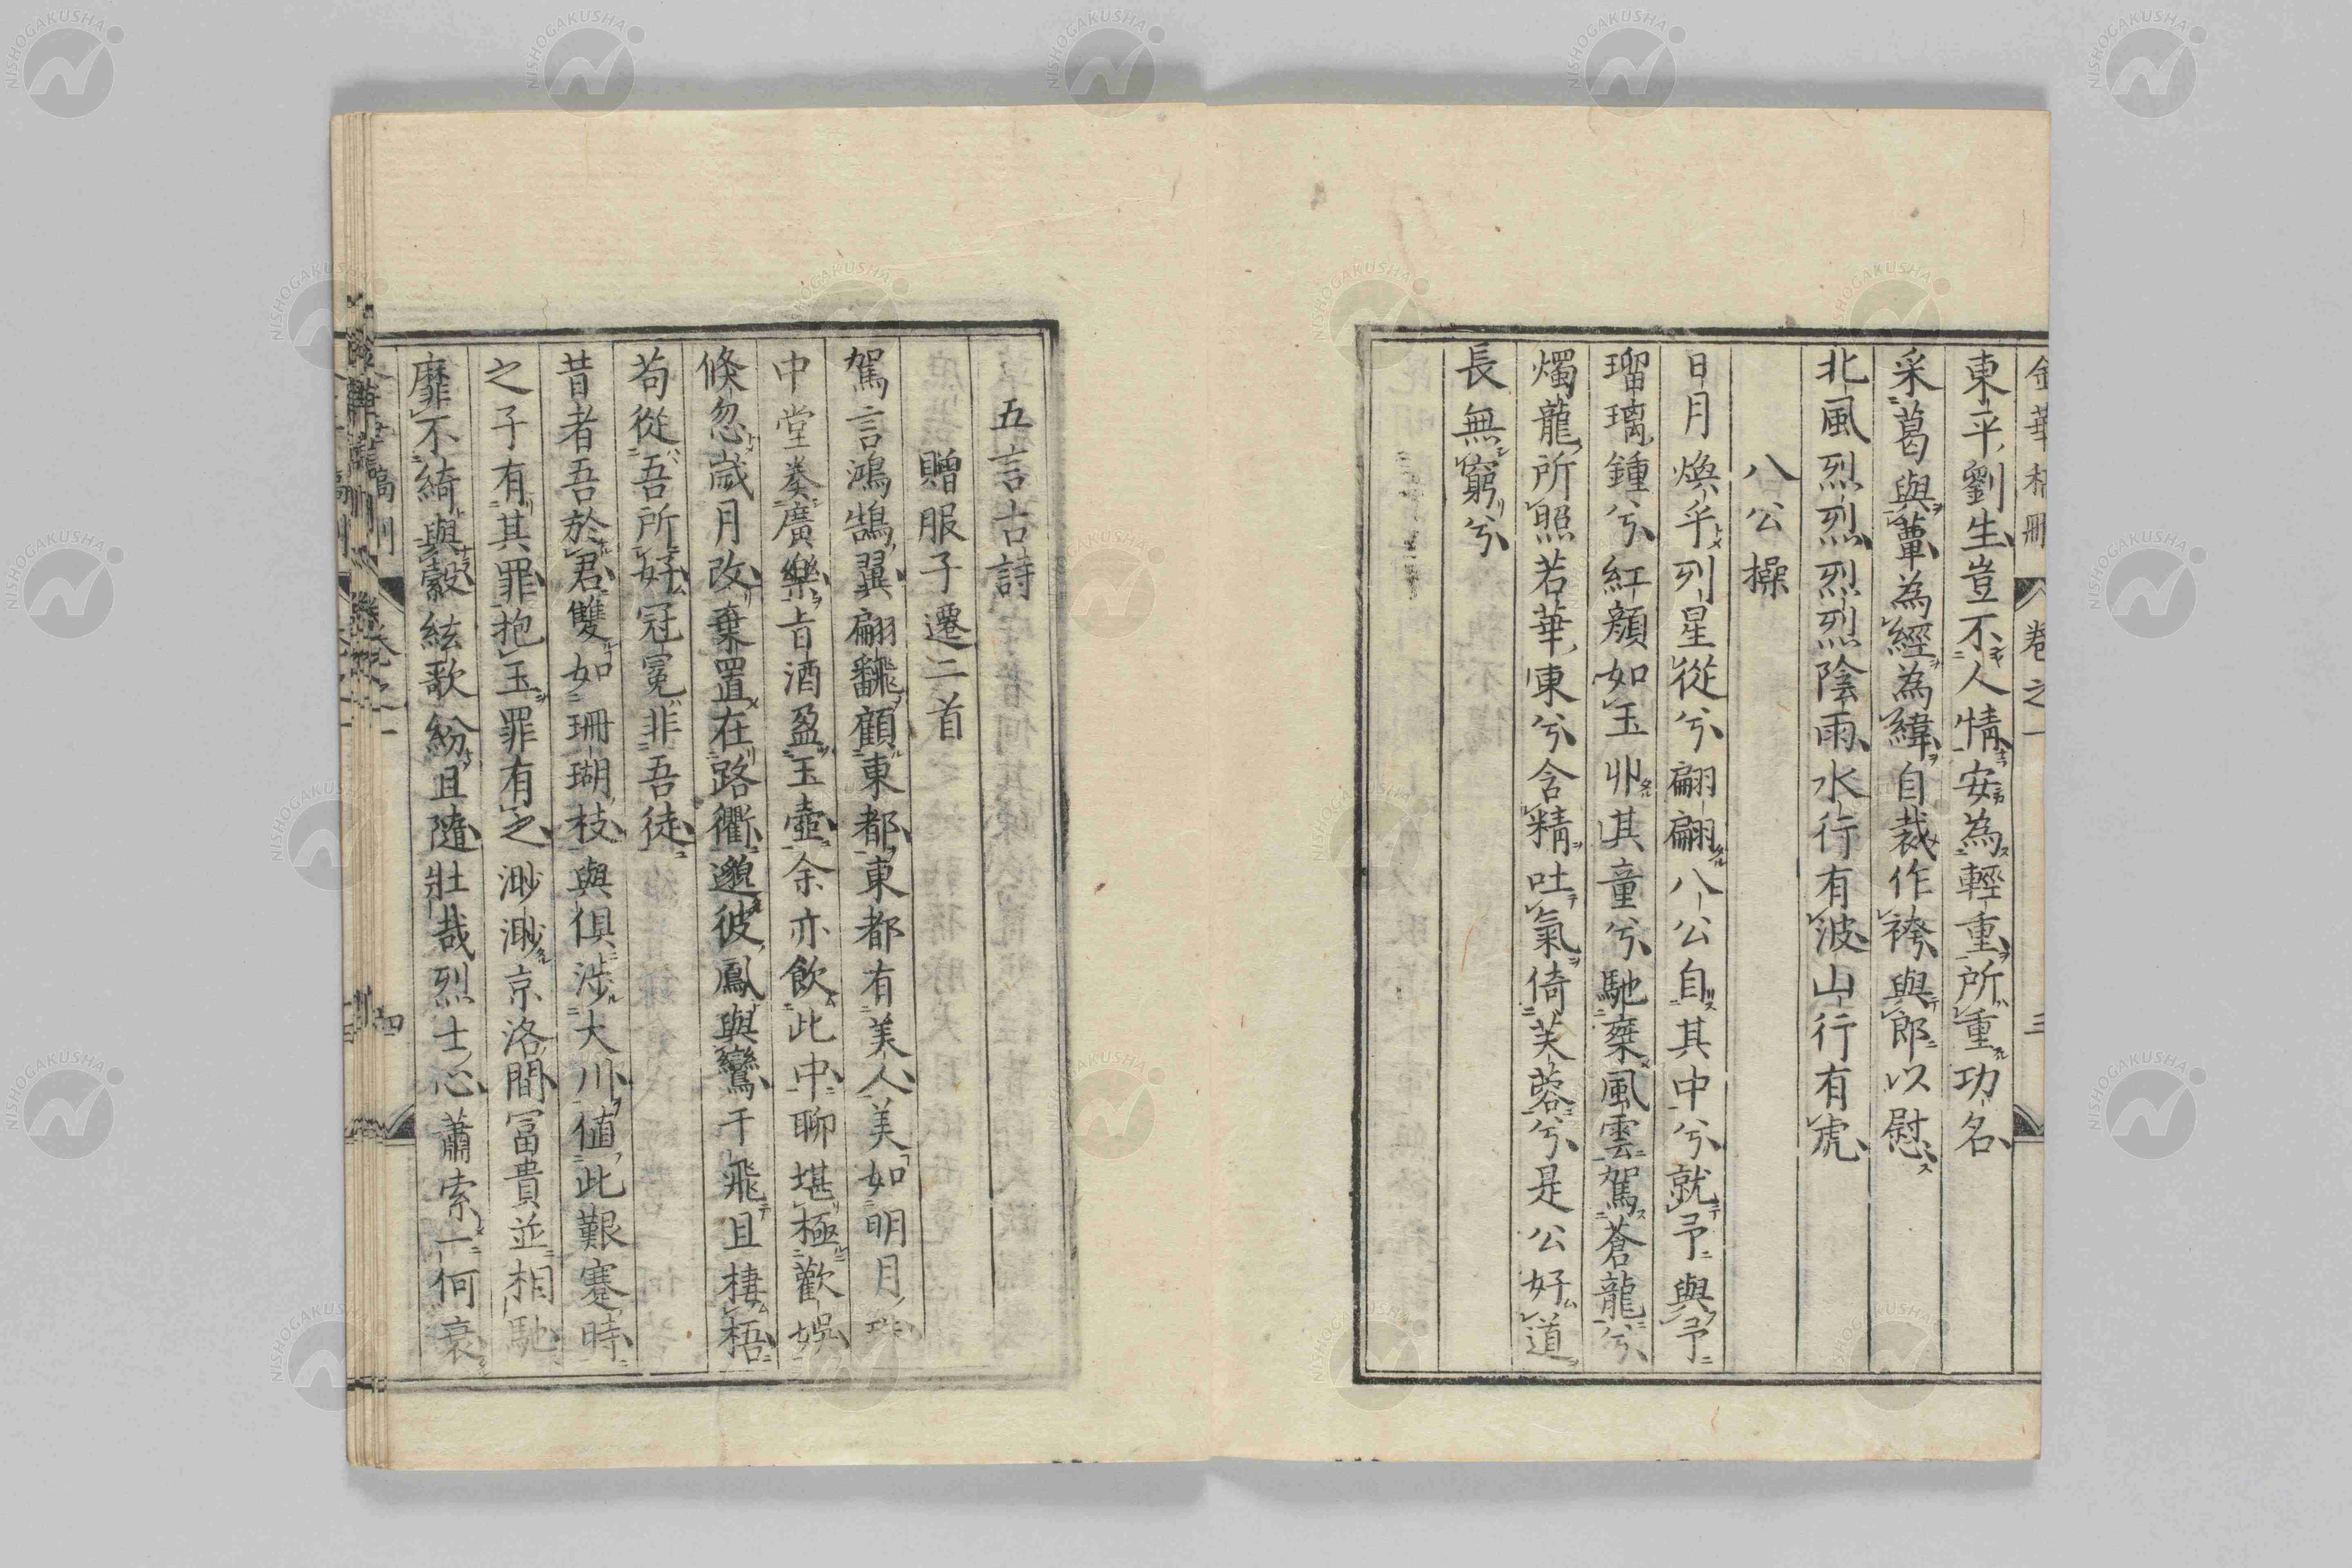 金華稿刪 卷之一 三
東平劉生豈不人情安為輕重所重功名
采葛與蕈為經為緯自裁作袴與郎以慰
北風烈烈烈烈陰雨水行有波山行有虎
八公操
日月煥乎列星從兮翩翩八公自其中兮就予與予
瑠璃鍾兮紅顏如玉丱其童兮馳椉風雲駕蒼龍兮
燭龍所照若華東兮含精吐氣倚芙蓉兮是公好道
長無窮兮
五言古詩
贈服子遷二首
駕言鴻鵠翼翩飜顧東都東都有美人美如明月珠
中堂奏廣樂旨酒盈玉壺余亦飲此中聊堪極歡娛
倐忽歲月改棄置在路衢邈彼鳳與鸞干飛且棲梧
苟從吾所好冠冕非吾徒
昔者吾於君雙如珊瑚枝與俱涉大川值此艱蹇時
之子有其罪抱玉罪有之渺渺京洛間富貴並相馳
靡不綺與縠絃歌紛且隨壯哉烈士心蕭索一何衰
NISHOGAKUSHA